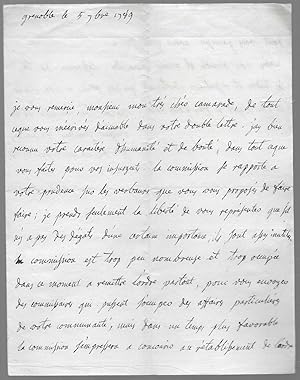 grenoble le 5 7bre 1789
je vous remercie, monsieur mon très chèr camarade, de tout
ceque vous m'écrivés d'aimable dans votre double lettre. j'ay bien
reconnu votre caractère d'humanité et de bonté, dans tout ceque
vous faites pour vos la commission se rapporte a
votre prudence sur les que vous vous proposés de faire
faire; je prends seulement la liberté de vous représenter que s'il
n'y a pas des dégats d'une certaine importance ils sont
la commission est trop peu nombreuse et trop occupée
dans ce moment a remettre l'ordre partout, pour vous envoyer
des commissaires qui puissent des affaires particulières
de votre communauté, mais dans un temps plus favorable
la commission s'empressera a concourir au rétablissement de l'ordre